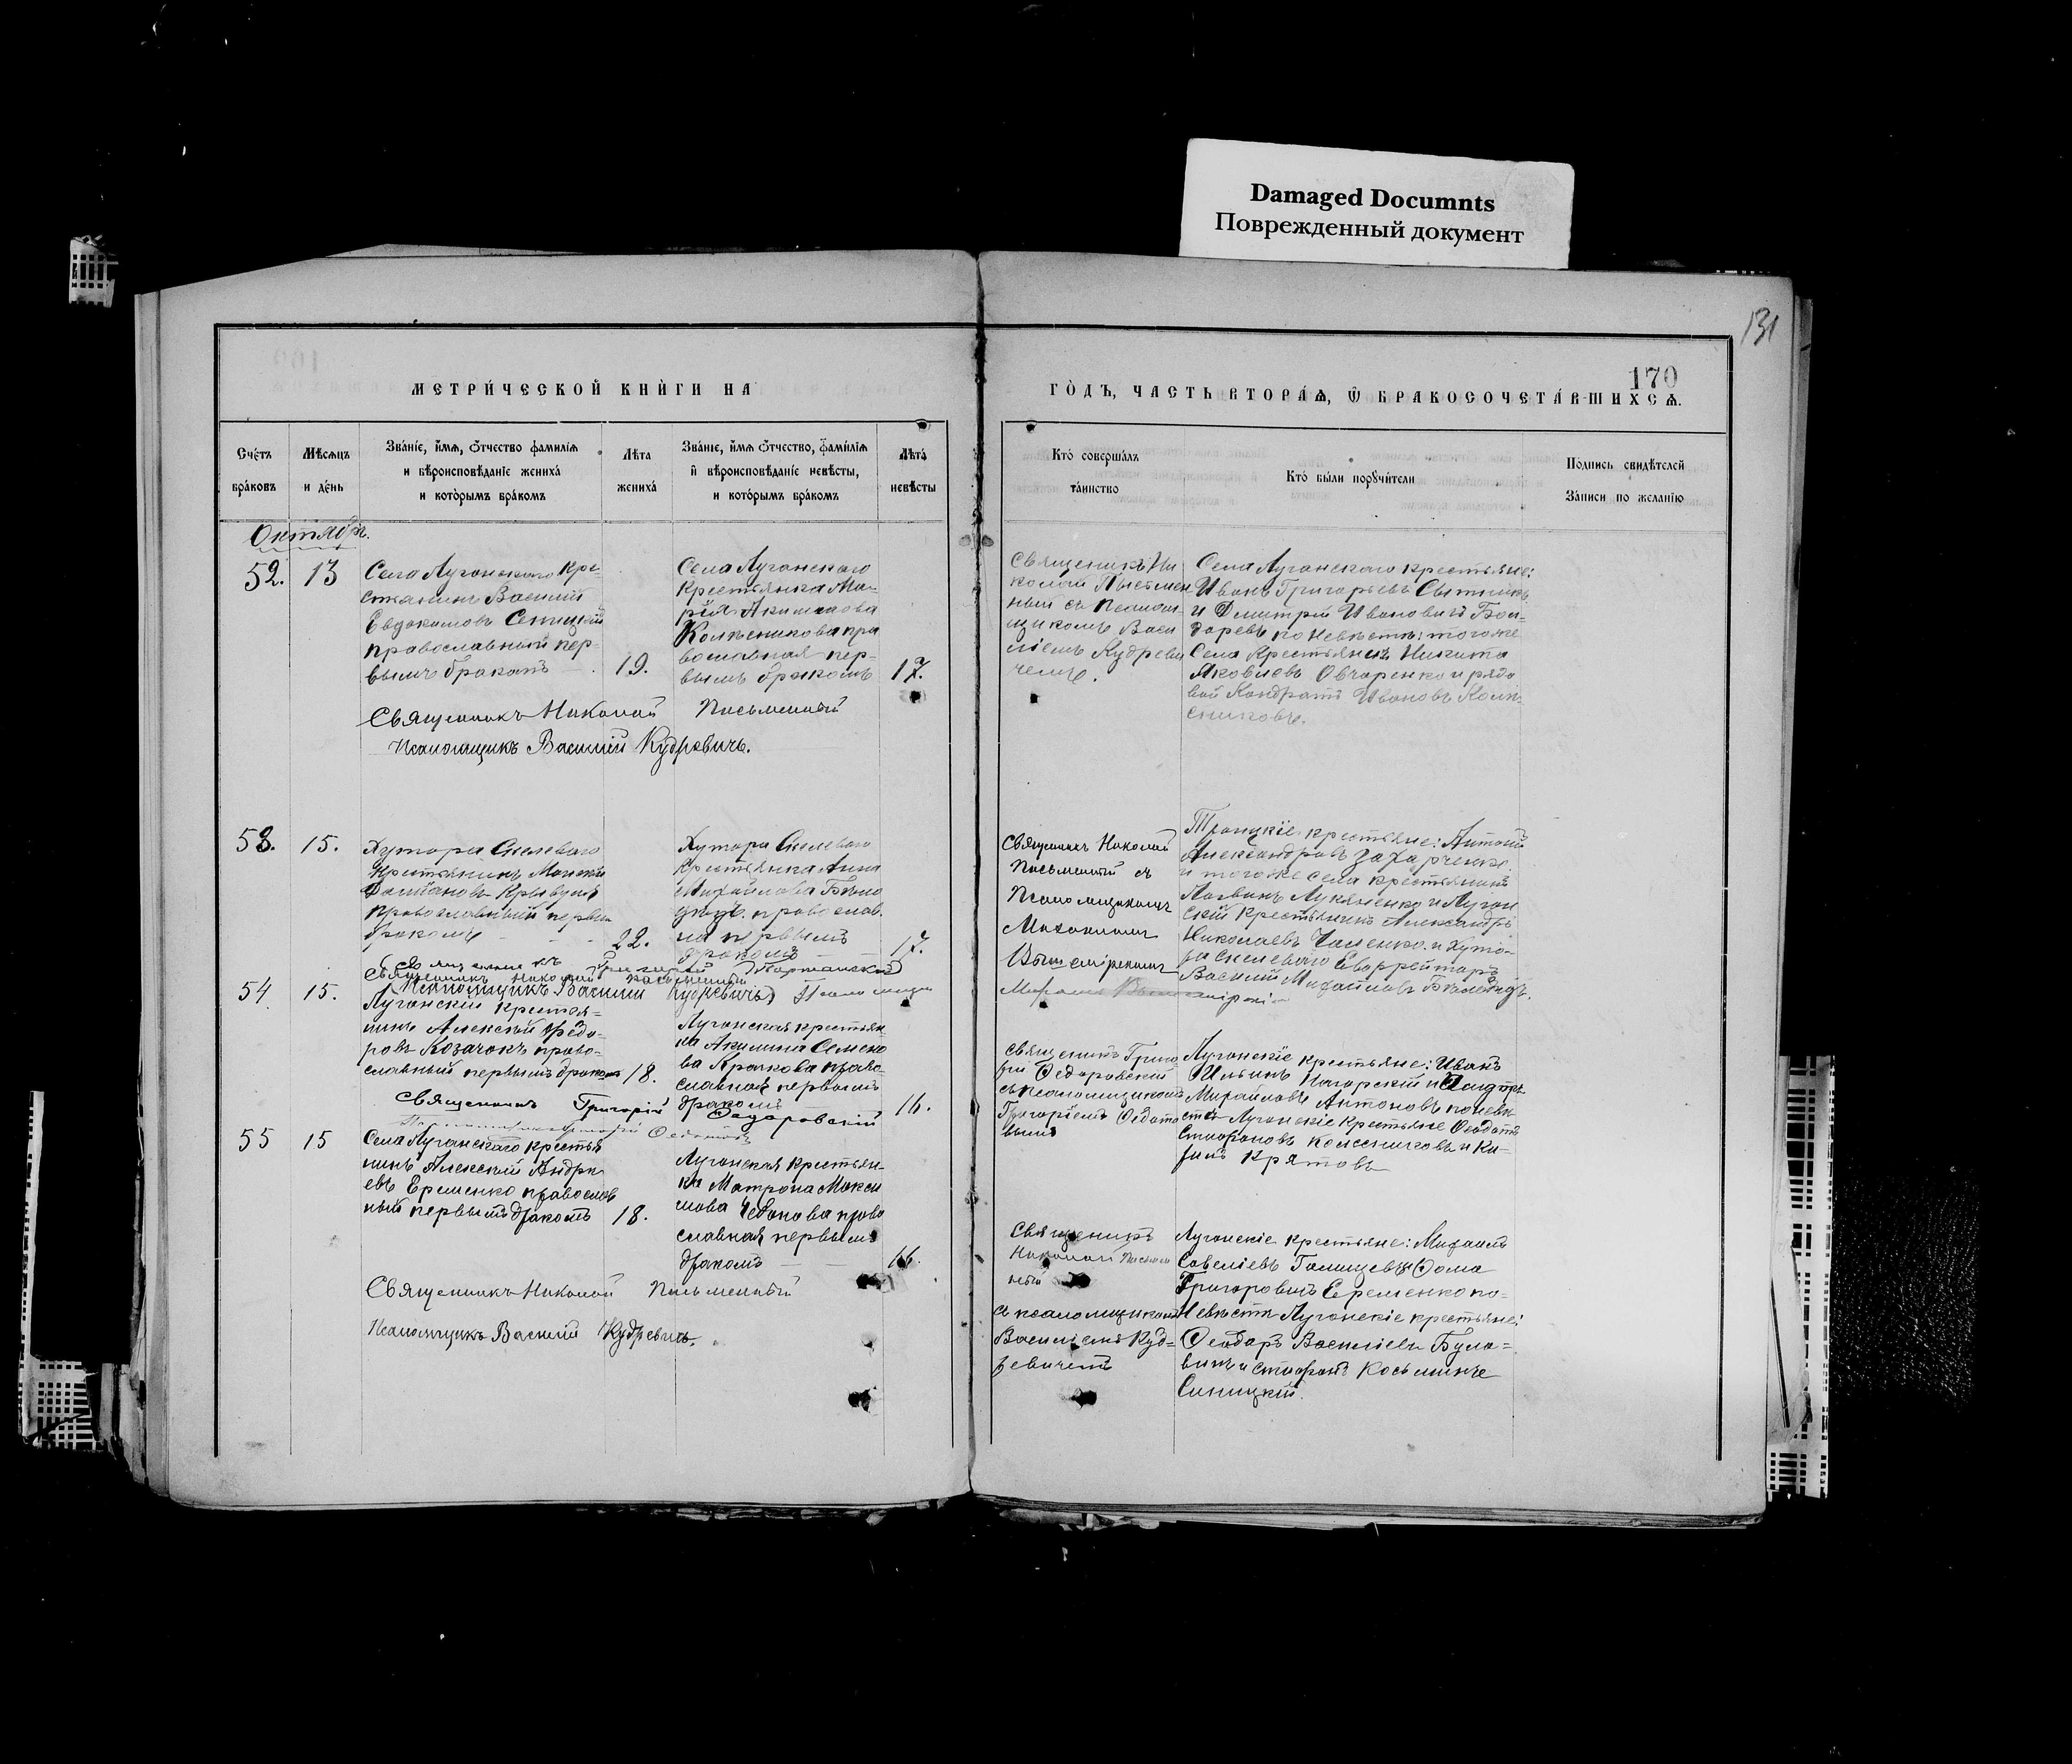 Damaged Documnts
Поврежденный документ
131
170
МЕТРИ́ЧЕСКОЙ КНИ́ГИ НА
ГО́ДЪ, ЧАСТЬ ВТОРА́Ѧ, Ѿ БРАКОСОЧЕТА́ВШИХСѦ.
Сче́тъ
бра́ковъ
Мѣсѧцъ
и де́нь
Зва́нїе, и́мѧ, о́тчество фамилїѧ
и вѣроисповѣ́данїе жениха́
и кото́рымъ бра́комъ
Лѣта
жениха́
Зва́нїе, и́мѧ о́тчество, фами́лїѧ
и вѣроисповѣ́данїе невѣ́сты,
и кото́рымъ бра́комъ
Лѣта́
невѣ́сты
Кто́ соверша́лъ
та́инство
Кто́ бы́ли порꙋчи́тели
По́дпись свидѣ́телей
За́писи по жела́нїю
Октябрь.
52. 13
Села Луганскаго кре-
стьянинъ Василій
Евдокимовъ Сеницкій
православный пер-
вымъ бракомъ
19.
Села Луганскаго
крестьянка Ма-
рія Акимова
Колѣсникова пра
вославная пер-
вымъ бракомъ
17.
Священикъ Ни
колай Письмен
ный съ псалом
щикомъ Васи
ліемъ Кудреви
чемъ.
Села Луганскаго крестьяне:
Иванъ Григорьевъ Сытникъ
и Дмитрій Ивановичъ Бон-
даревъ по невѣстѣ: того же
Села Крестьянинъ Никита
Яковлевъ Овчаренко и рядо
вой Кондратъ Ивановъ Колѣ-
сниковъ.
Священникъ Николай Письменный
Псаломщикъ Василій Кудревичъ.
53. 15.
Хутора Скелеваго
крестьянинъ
православный первым
бракомъ
22.
Хутора Скелеваго
крестьянка Анна
Михайлова Бѣло
православ.
на первымъ
бракомъ
17.
Священникъ Николай
Письменный съ
Псаломщикомъ
Михаиломъ
Троицкіе крестьяне: Антоній
Александровъ Захарченко
и того же села крестьянинъ
Лукяненко и Луган
скій крестьянинъ Александръ
Николаевъ и Хуто-
ра Скелеваго Ефрейторъ
Василій Михайловъ
Священникъ Николай Письменный
Псаломщикъ Василій Кудревичъ
54 15.
Луганскій крестья-
нинъ Алексѣй Ѳедо-
ровъ Козачокъ право-
славный первымъ бракомъ
18.
Луганская крестьян
ка Акилина Семено
ва Крачкова право-
славная первымъ
бракомъ
16.
Священикъ Григо
рій Ѳедоровскій
съ псаломщикомъ
Григоріемъ Ѳедото
вымъ
Луганскіе крестьяне: Иванъ
Ильинъ Нагорскій и
Михайловъ Антоновъ по невѣ
стѣ Луганскіе Крестьяне Ѳеодотъ
Стефановъ Колесниковъ и Ки-
Священникъ Григорій Ѳедоровскій
55 15
Села Луганскаго крестья
нинъ Алексѣй Андре
евъ Еременко православ
ный первымъ бракомъ
18.
Луганская крестьян-
ка Матрона Макси
мова право
славная первымъ
бракомъ
16.
Священикъ
Николай Письмен
ный
съ псаломщикомъ
Василіемъ Куд-
ревичемъ
Луганскіе крестьяне: Михаилъ
Савеліевъ и Ѳома
Григоровичъ Еременко по-
Невѣсти Луганскіе крестьяне:
Ѳеодоръ Василіевъ Була-
винъ и Стефанъ Косьминъ
Синицкій.
Священникъ Николай Письменный
Псаломщикъ Василій Кудревичъ.